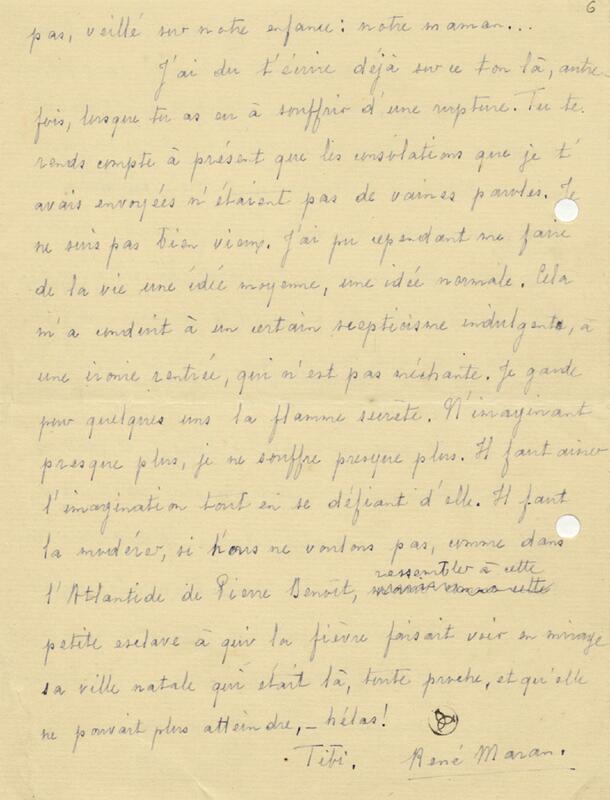 6
pas, veillé sur notre enfance : notre maman...
J'ai du t'écrire déjà sur ce ton là, autre-
fois, lorsque tu as eu à souffrir d'une rupture. Tu te
rends compte à présent que les consolations que je t'
avais envoyées n'étaient pas de vaines paroles. Je
ne suis pas bien vieux. J'ai pu cependant me faire
de la vie une idée moyenne, une idée normale. Cela
m'a conduit à un certain scepticisme indulgent, à
une ironie rentrée, qui n'est pas méchante. Je garde
pour quelques uns la flamme secrète. N'imaginant
presque plus, je ne souffre presque plus. Il faut aimer
l'imagination tout en se défiant d'elle. Il faut
la modérer, si nous ne voulons pas, comme dans
l'Atlantide de Pierre Benoît, ressembler à cette
petite esclave à qui la fièvre faisait voir en mirage
sa ville natale qui était là, toute proche, et qu'elle
ne pouvait plus atteindre, – hélas !
Tibi. René Maran.